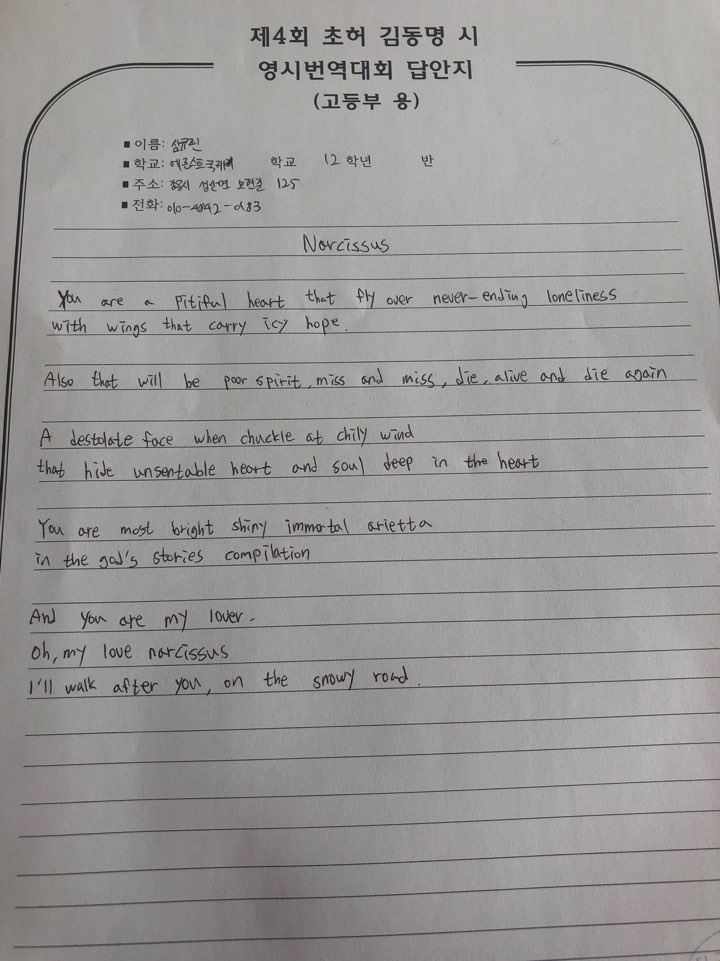 제4회 초허 김동명 시
영시번역대회 답안지
(고등부 용)
■ 이름:
■ 학교: 학교 12 학년 반
■ 주소: 성산면 125
■ 전화:
Narcissus
You are a pitiful heart that fly over never-ending loneliness
with wings that carry icy hope.
Also that will be poor spirit, miss and miss, die, alive and die again
A destolate face when chuckle at chily wind
that hide unsentable heart and soul deep in the heart
You are most bright shiny immortal arietta
in the god's stories compilation
And you are my lover.
Oh, my love narcissus
I'll walk after you, on the snowy road.